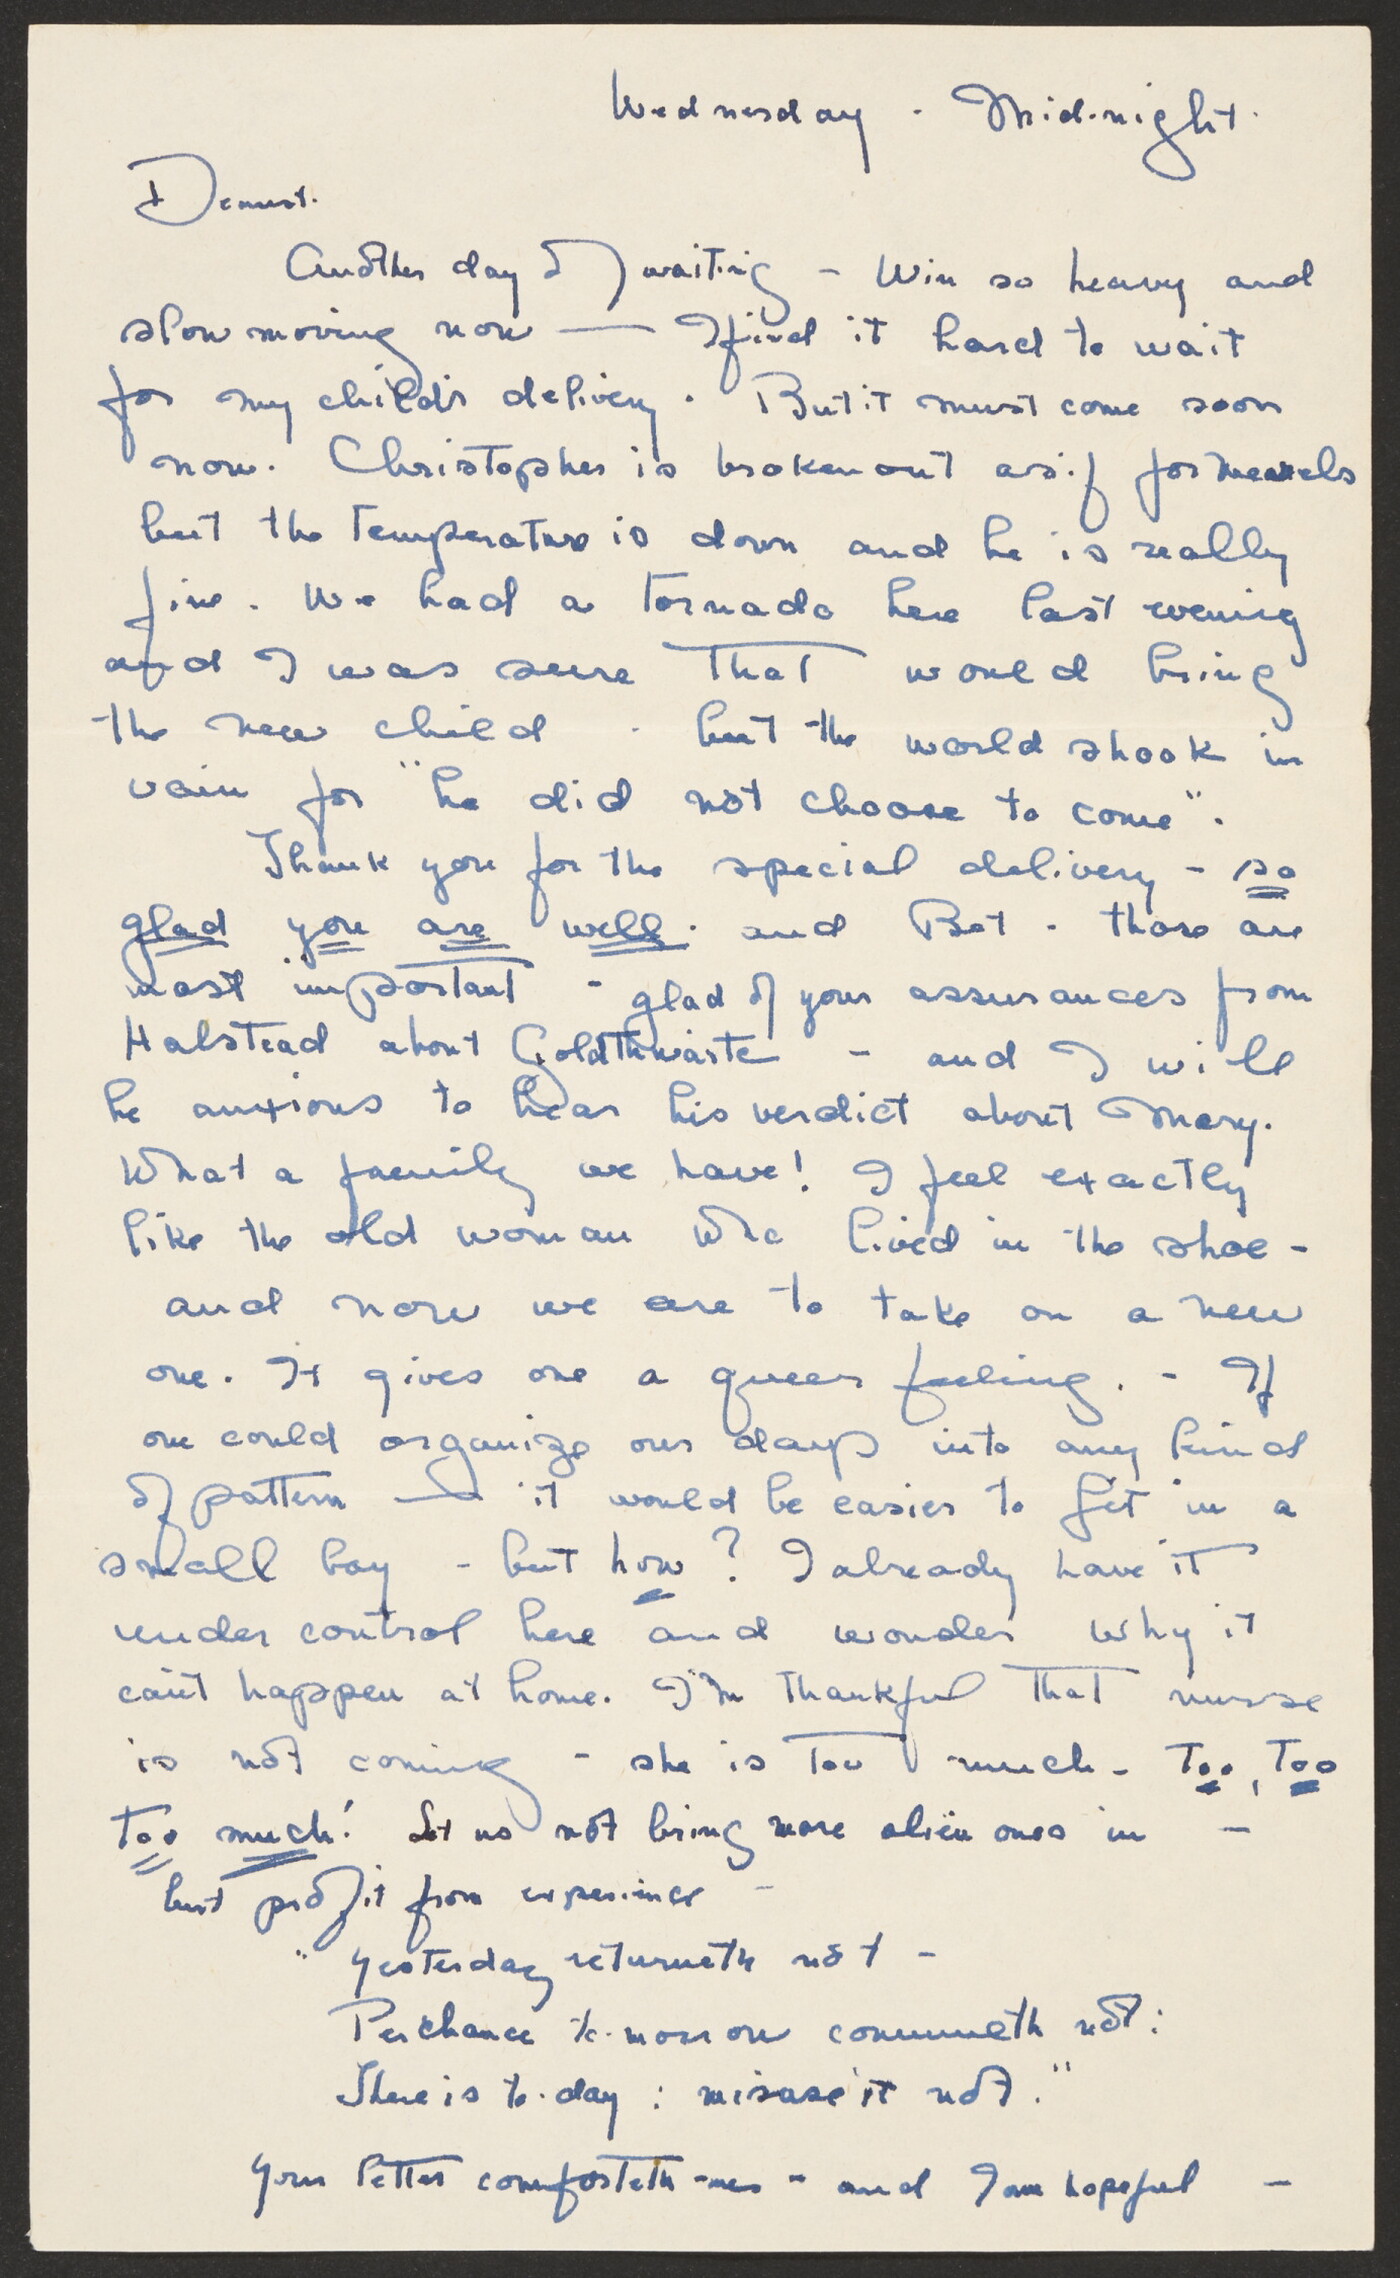 Wednesday - Mid-night.
Dearest.
Another day of waiting - Win so heavy and
slow moving now — I find it hard to wait
for my child's delivery. But it must come soon
now. Christopher is broken out as if for measels
but the temperature is down and he is really
fine. We had a tornado here last evening
and I was sure that would bring
the new child - but the world shook in
vain for "he did not choose to come".
Thank you for the special delivery - so
glad you are well - and Bet - those are
most important - glad of your assurances from
Halstead about Goldthwaite - and I will
be anxious to hear his verdict about Mary.
What a family we have! I feel exactly
like the old woman who lived in the shoe -
and now we are to take on a new
one. It gives one a queer feeling. - If
one could organize our days into any kind
of pattern — it would be easier to fit in a
small boy - but how? I already have it
under control here and wonder why it
can't happen at home. I'm thankful that nurse
is not coming - she is too much - Too, Too
Too much! Let us not bring more alien ones in -
but profit from experience -
"Yesterday returneth not -
Perchance to-morrow cometh not:
There is to-day: misuse it not."
Your letter comforteth me - and I am hopeful -